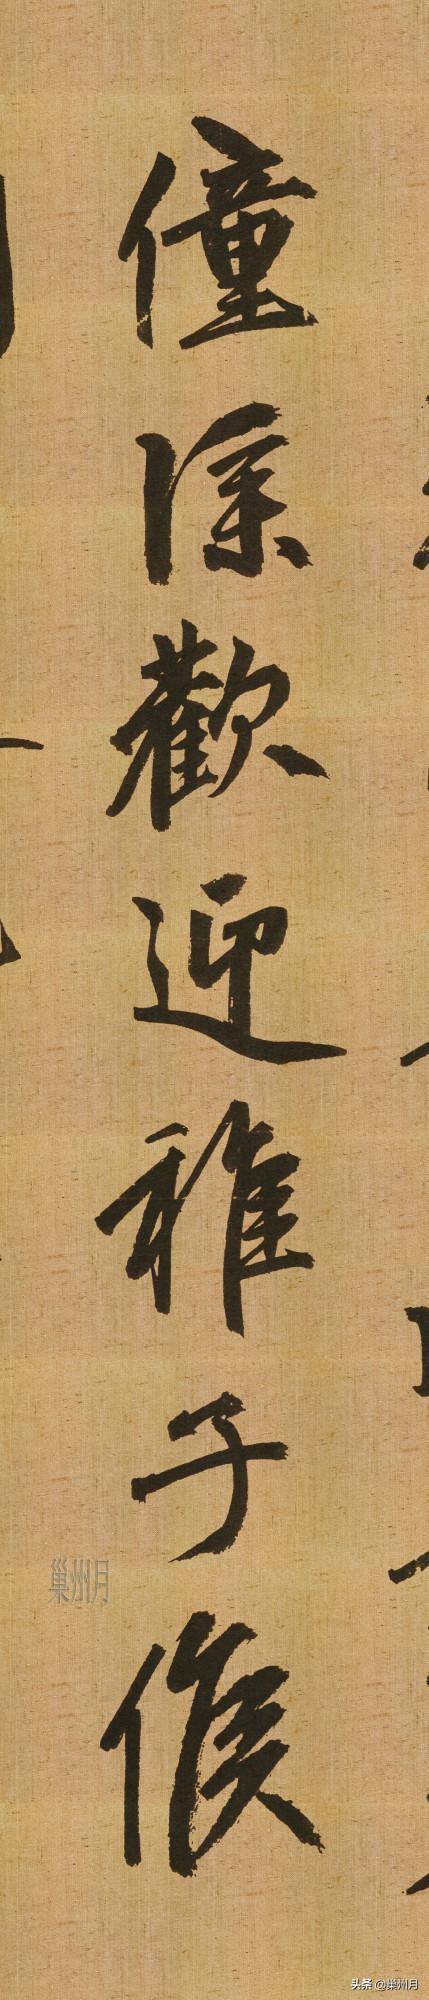 僮僕歡迎稚子候
巢州月
头条 @巢州月